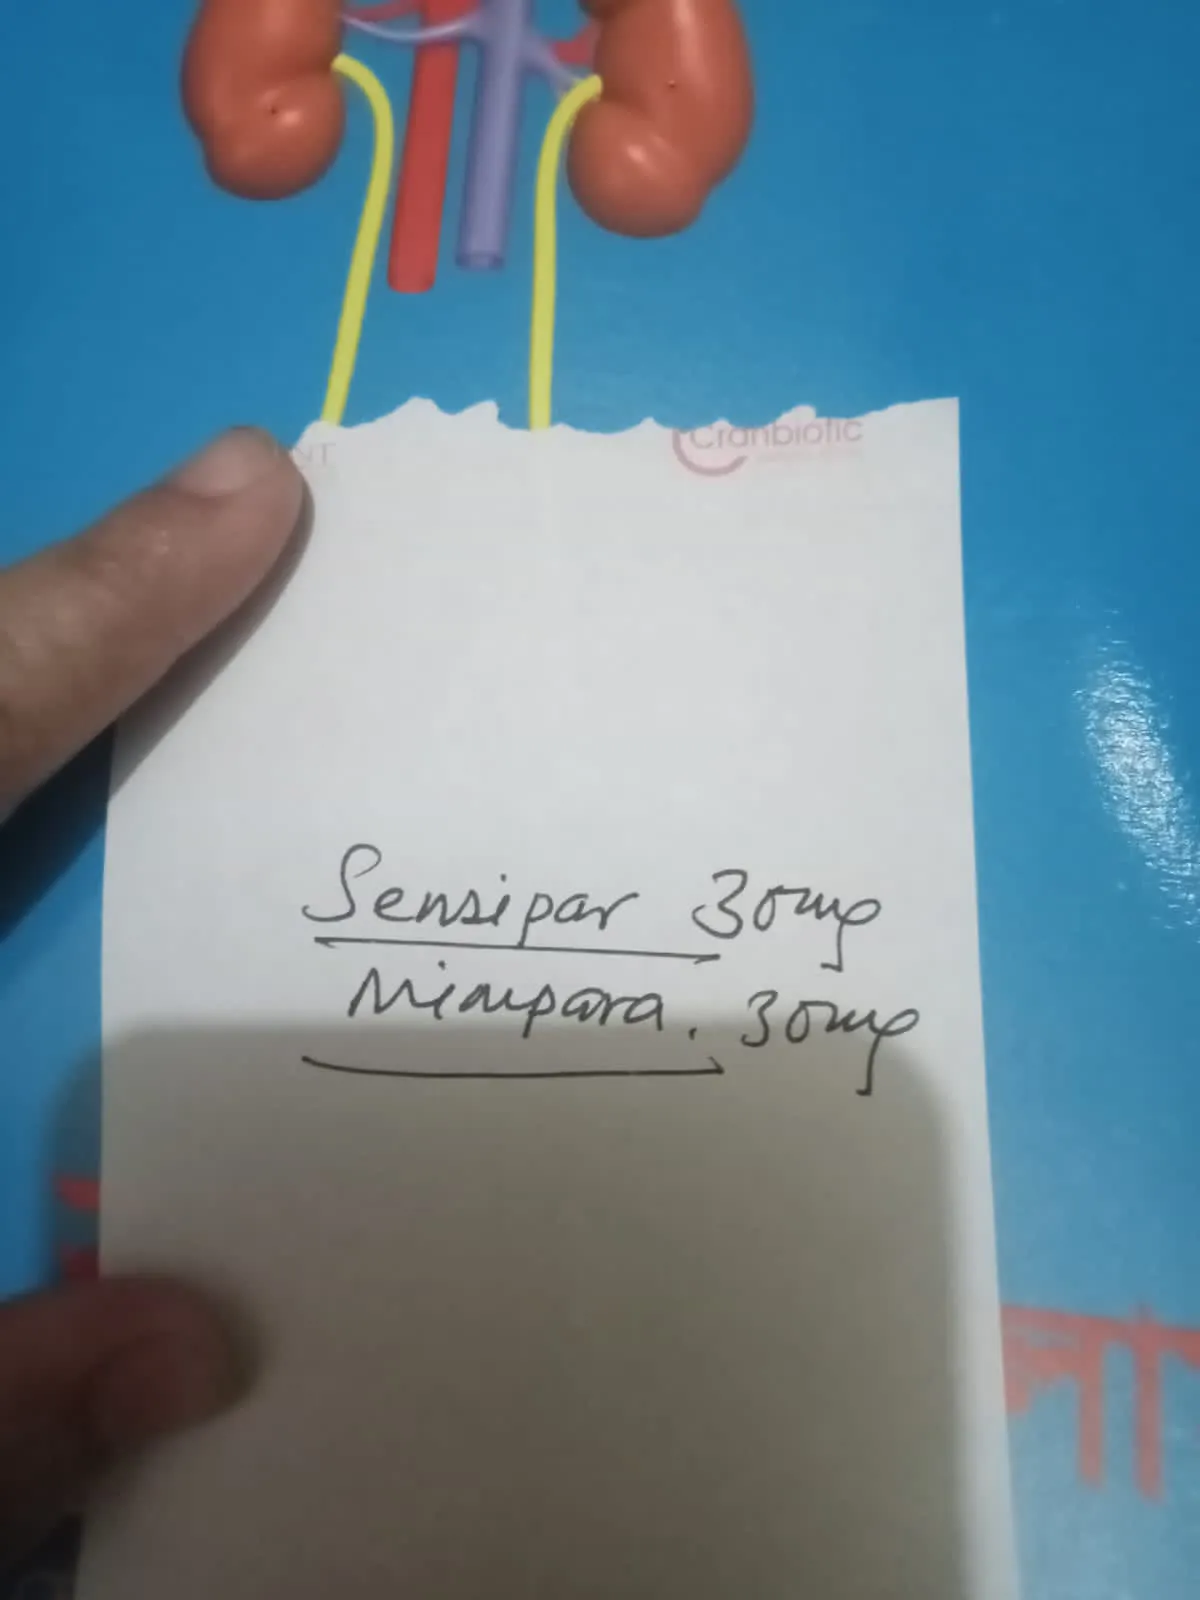 Cranbiotic
Sensipar 30mg
Mimpara. 30mg